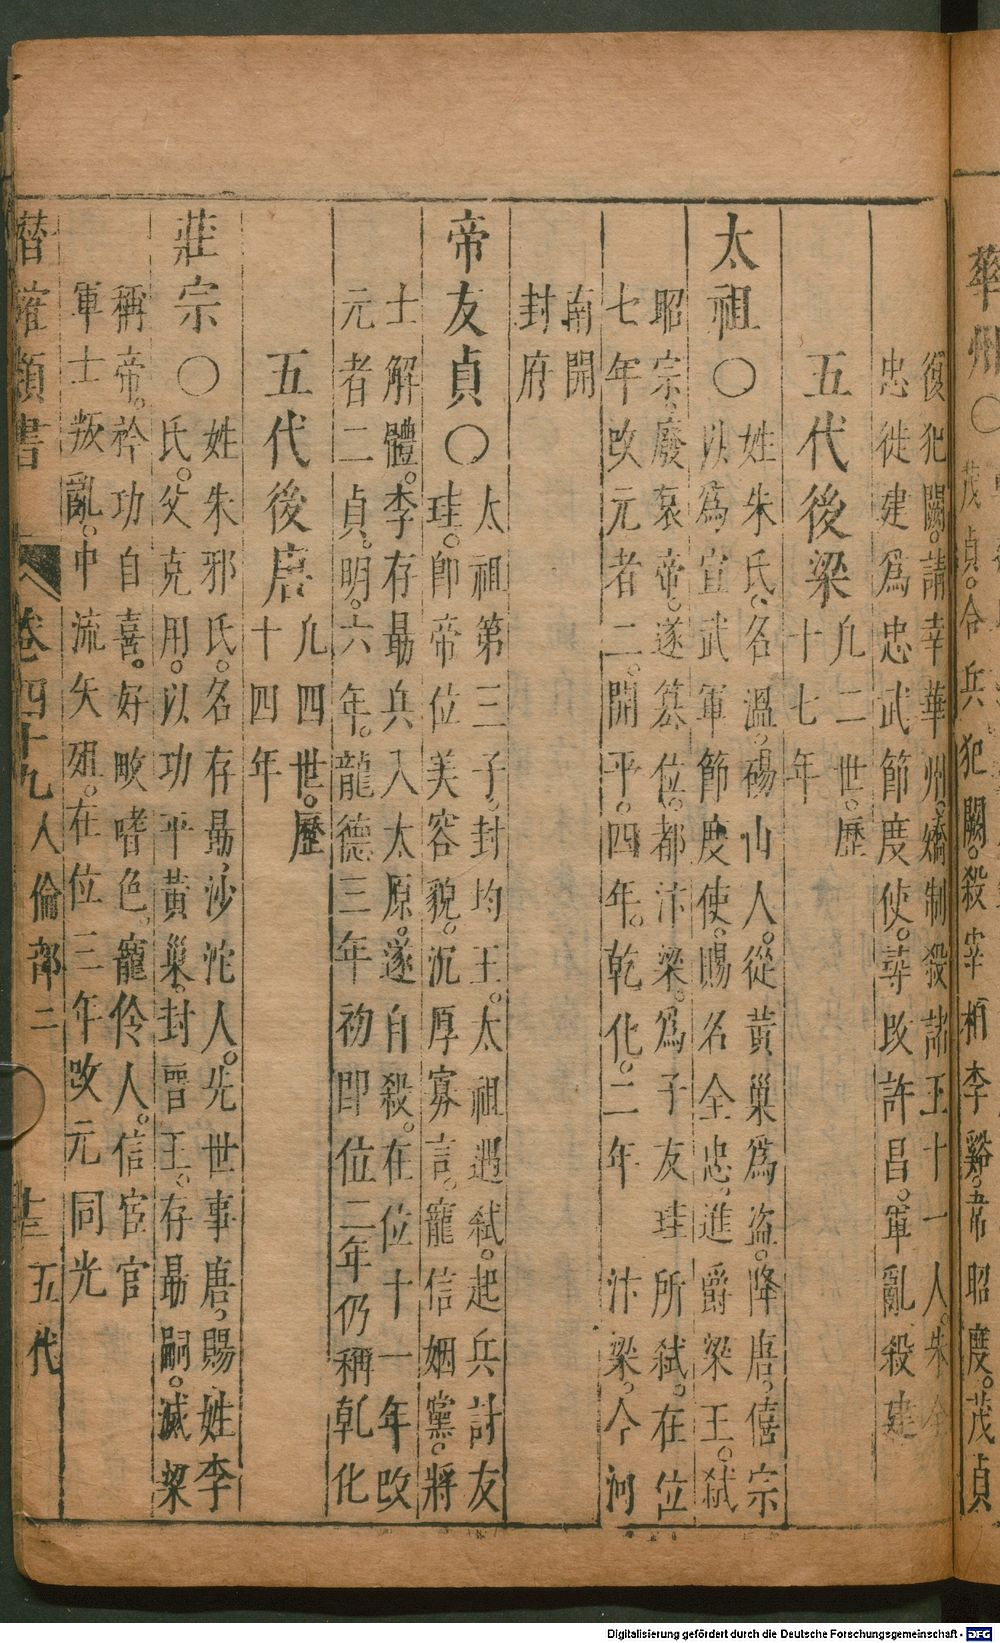 華州〇茂貞。合兵犯闕。殺宰相李谿。韋昭度。茂貞
復犯闕。請幸華州。矯制殺諸王十一人。朱全
忠徙建爲忠武節度使。尋改許昌。軍亂殺建
五代後梁
凡二世。歷
十七年
太祖〇
姓朱氏。名溫。碭山人。從黃巢爲盜。降唐。僖宗
以爲宣武軍節度使。賜名全忠。進爵梁王。弒
昭宗。廢哀帝。遂簒位。都汴梁。爲子友珪所弒。在位
七年改元者二。開平。四年。乾化。二年 汴梁。今河
南開
封府
帝友貞〇
太祖第三子。封均王。太祖遇弒。起兵討友
珪。卽帝位美容貌。沉厚寡言。寵信姻黨。將
士解體。李存勗兵入太原。遂自殺。在位十一年改
元者二貞。明。六年。龍德三年初即位二年仍稱乾化
五代後唐
凡四世。歷
十四年
莊宗〇
姓朱邪氏。名存勗。沙沱人。先世事唐。賜姓李
氏。父克用。以功平黃巢。封晉王。存勗嗣。滅梁
稱帝。矜功自喜。好畋嗜色。寵伶人。信宦官
軍士叛亂。中流矢殂。在位三年改元同光
潛確類書 卷四十九 人倫部二 十三 五代
Digitalisierung gefördert durch die Deutsche Forschungsgemeinschaft - DFG